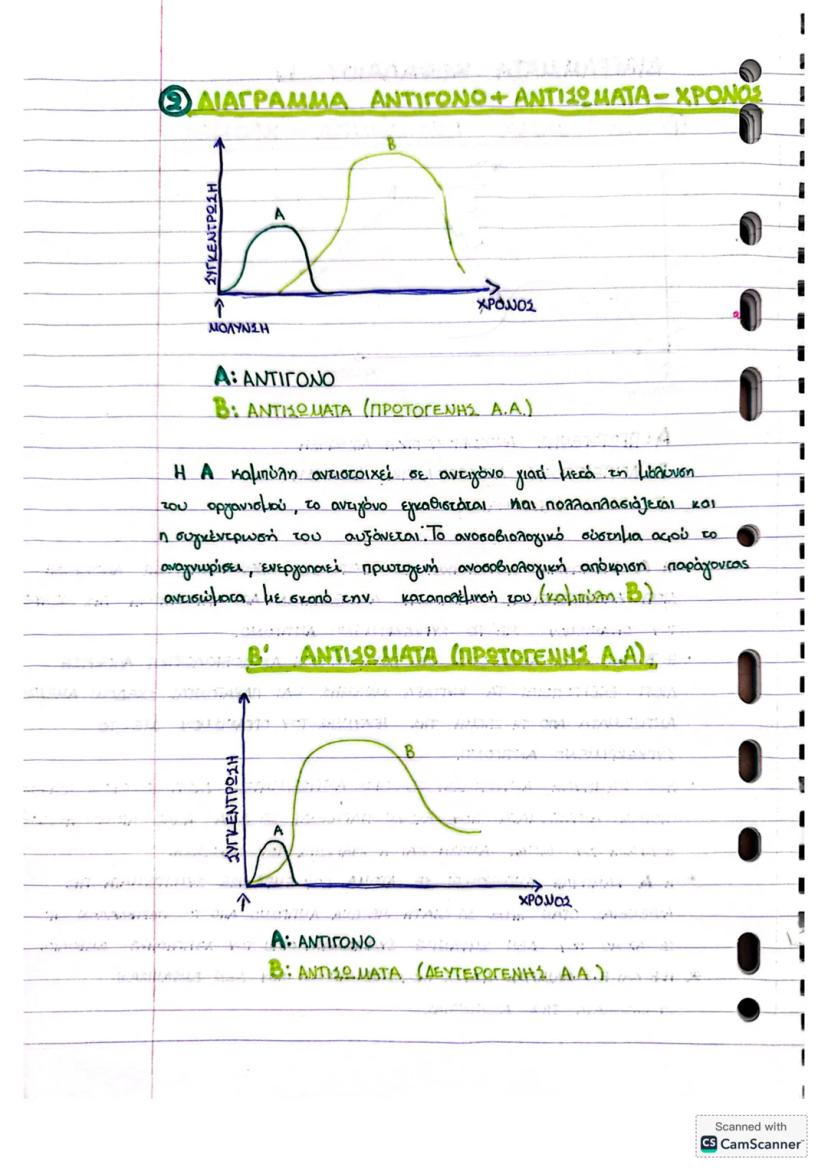 2 ΔΙΑΓΡΑΜΜΑ ΑΝΤΙΓΟΝΟ + ΑΝΤΙΣΩΜΑΤΑ - ΧΡΟΝΟΣ
B
A
ΣΥΓΚΕΝΤΡΩΣΗ
ΧΡΟΝΟΣ
ΜΟΛΥΝΣΗ
A: ΑΝΤΙΓΟΝΟ
B: ΑΝΤΙΣΩΜΑΤΑ (ΠΡΩΤΟΓΕΝΗΣ Α.Α.)
Η Α καμπύλη αντιστοιχεί σε αντιγόνο γιατί μετά τη μόλυνση
του οργανισμού, το αντιγόνο εγκαθίσταται και πολλαπλασιάζεται και
η συγκέντρωσή του αυξάνεται. Το ανοσοβιολογικό σύστημα αφού το
αναγνωρίσει, ενεργοποιεί πρωτογενή ανοσοβιολογική απόκριση παράγοντας
αντισώματα με σκοπό την καταπολέμησή του (καμπύλη Β)
Β' ΑΝΤΙΣΩΜΑΤΑ (ΠΡΩΤΟΓΕΝΗΣ Α.Α).
B
A
ΣΥΓΚΕΝΤΡΩΣΗ
ΧΡΟΝΟΣ
A: ΑΝΤΙΓΟΝΟ
B: ΑΝΤΙΣΩΜΑΤΑ (ΔΕΥΤΕΡΟΓΕΝΗΣ Α.Α.)
Scanned with
CS CamScanner